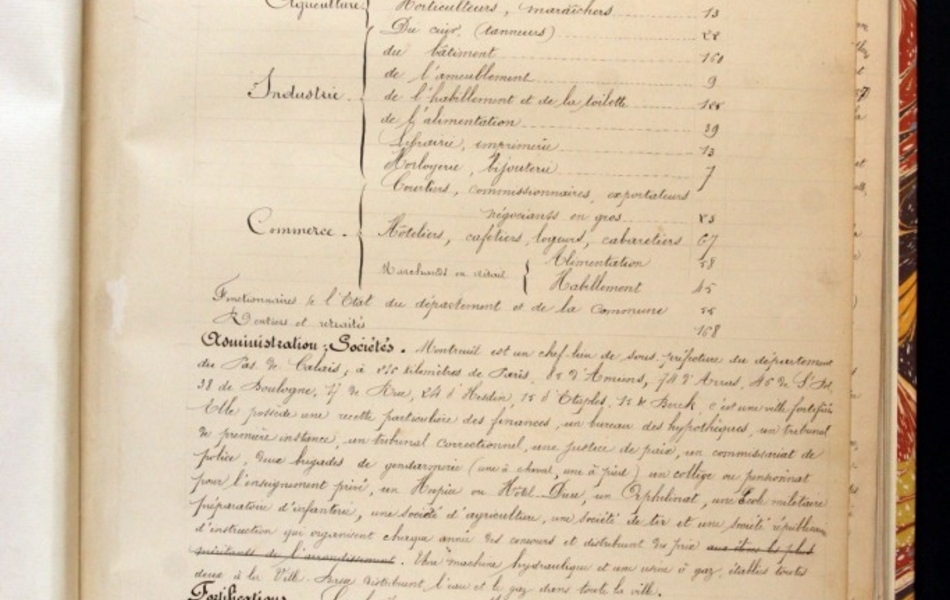 Agriculture. Horticulteurs, maraîchers 13
Du cuir (tanneurs)
du bâtiment 150
de l'ameublement 9
Industrie. de l'habillement et de la toilette
de l'alimentation 39
Librairie, imprimerie 13
Horlogerie, bijouterie 7
Courtiers, commissionnaires, exportateurs
négociants en gros
Commerce. Hôteliers, cafetiers, logeurs, cabaretiers 67
Marchands en détail Alimentation 58
Habillement 45
Fonctionnaires de l'Etat du département et de la Commune
Rentiers et retraités 168
Administration; Sociétés. Montreuil est un chef-lieu de sous-préfecture du département
du Pas de Calais, à kilomètres de Paris, d'Amiens, 74 d'Arras, 45 de St
38 de Boulogne, 17 de Rue, 24 d'Hesdin, 15 d'Etaples, 15 de Berck, c'est une ville fortifiée
Elle possède une recette particulière des finances, un bureau des hypothèques, un tribunal
de première instance, un tribunal correctionnel, une justice de paix, un commissariat de
police, deux brigades de gendarmerie (une à cheval, une à pied) un collège ou pensionnat
pour l'enseignement privé, un Hospice ou Hôtel-Dieu, un Orphelinat, une Ecole militaire
préparatoire d'infanterie, une société d'agriculture, une société de tir et une société républicaine
d'instruction qui organisent chaque année des concours et distribuent des prix aux élèves les plus
méritants de l'arrondissement. Une machine hydraulique et une usine à gaz, établies toutes
deux à la Ville distribuent l'eau et le gaz dans toute la ville.
Fortifications.